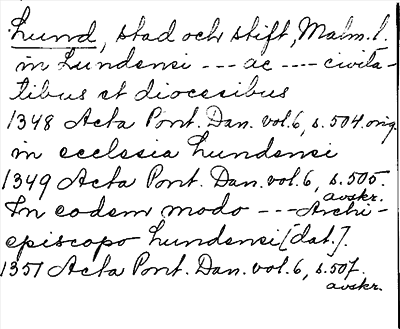 Lund, stad och stift, Malm. l.
in Lundensi --- ac ---- civita-
tibus et diocesibus
1348 Acta Pont. Dan. vol. 6, s. 504. orig.
in ecclesia Lundensi
1349 Acta Pont. Dan. vol. 6, s. 505.
avskr.
In eodem modo --- Archi-
episcopo Lundensi [dat.].
1351 Acta Pont. Dan. vol. 6, s. 507.
avskr.